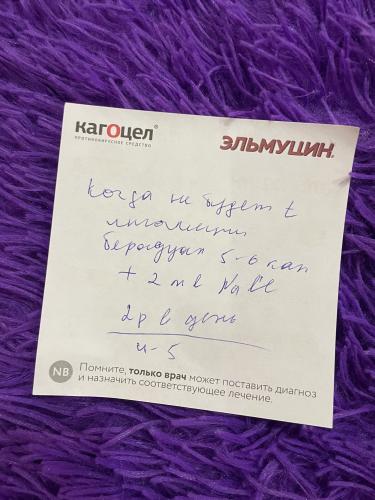 кагоцел®
ПРОТИВОВИРУСНОЕ СРЕДСТВО
ЭЛЬМУЦИН®
Когда не будет t
ингаляции
беродуал 5-6 кап
+ 2 мл NaCl
2р в день
4-5
NB
Помните, только врач может поставить диагноз
и назначить соответствующее лечение.